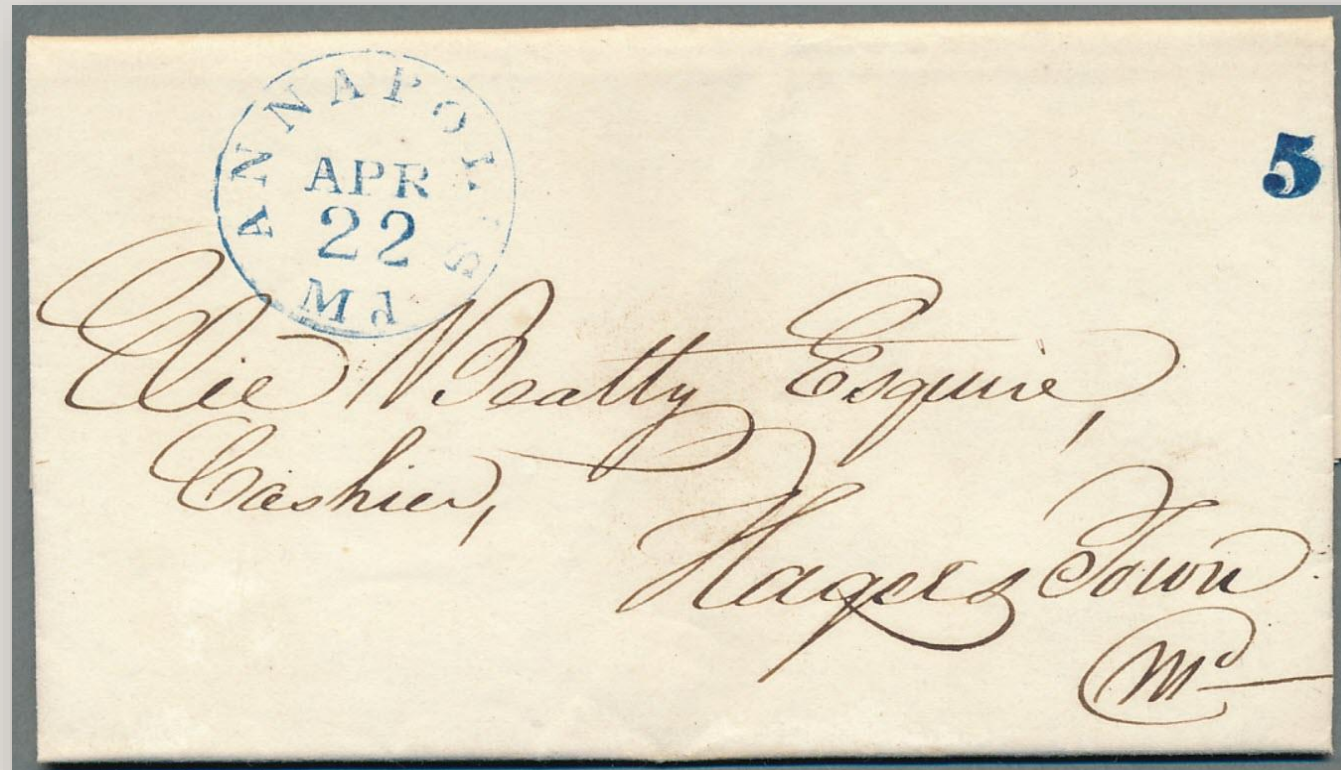 ANNAPOLIS
APR
22
Md
5
Elie Beatty Esquire,
Cashier,
Hagers Town
Md